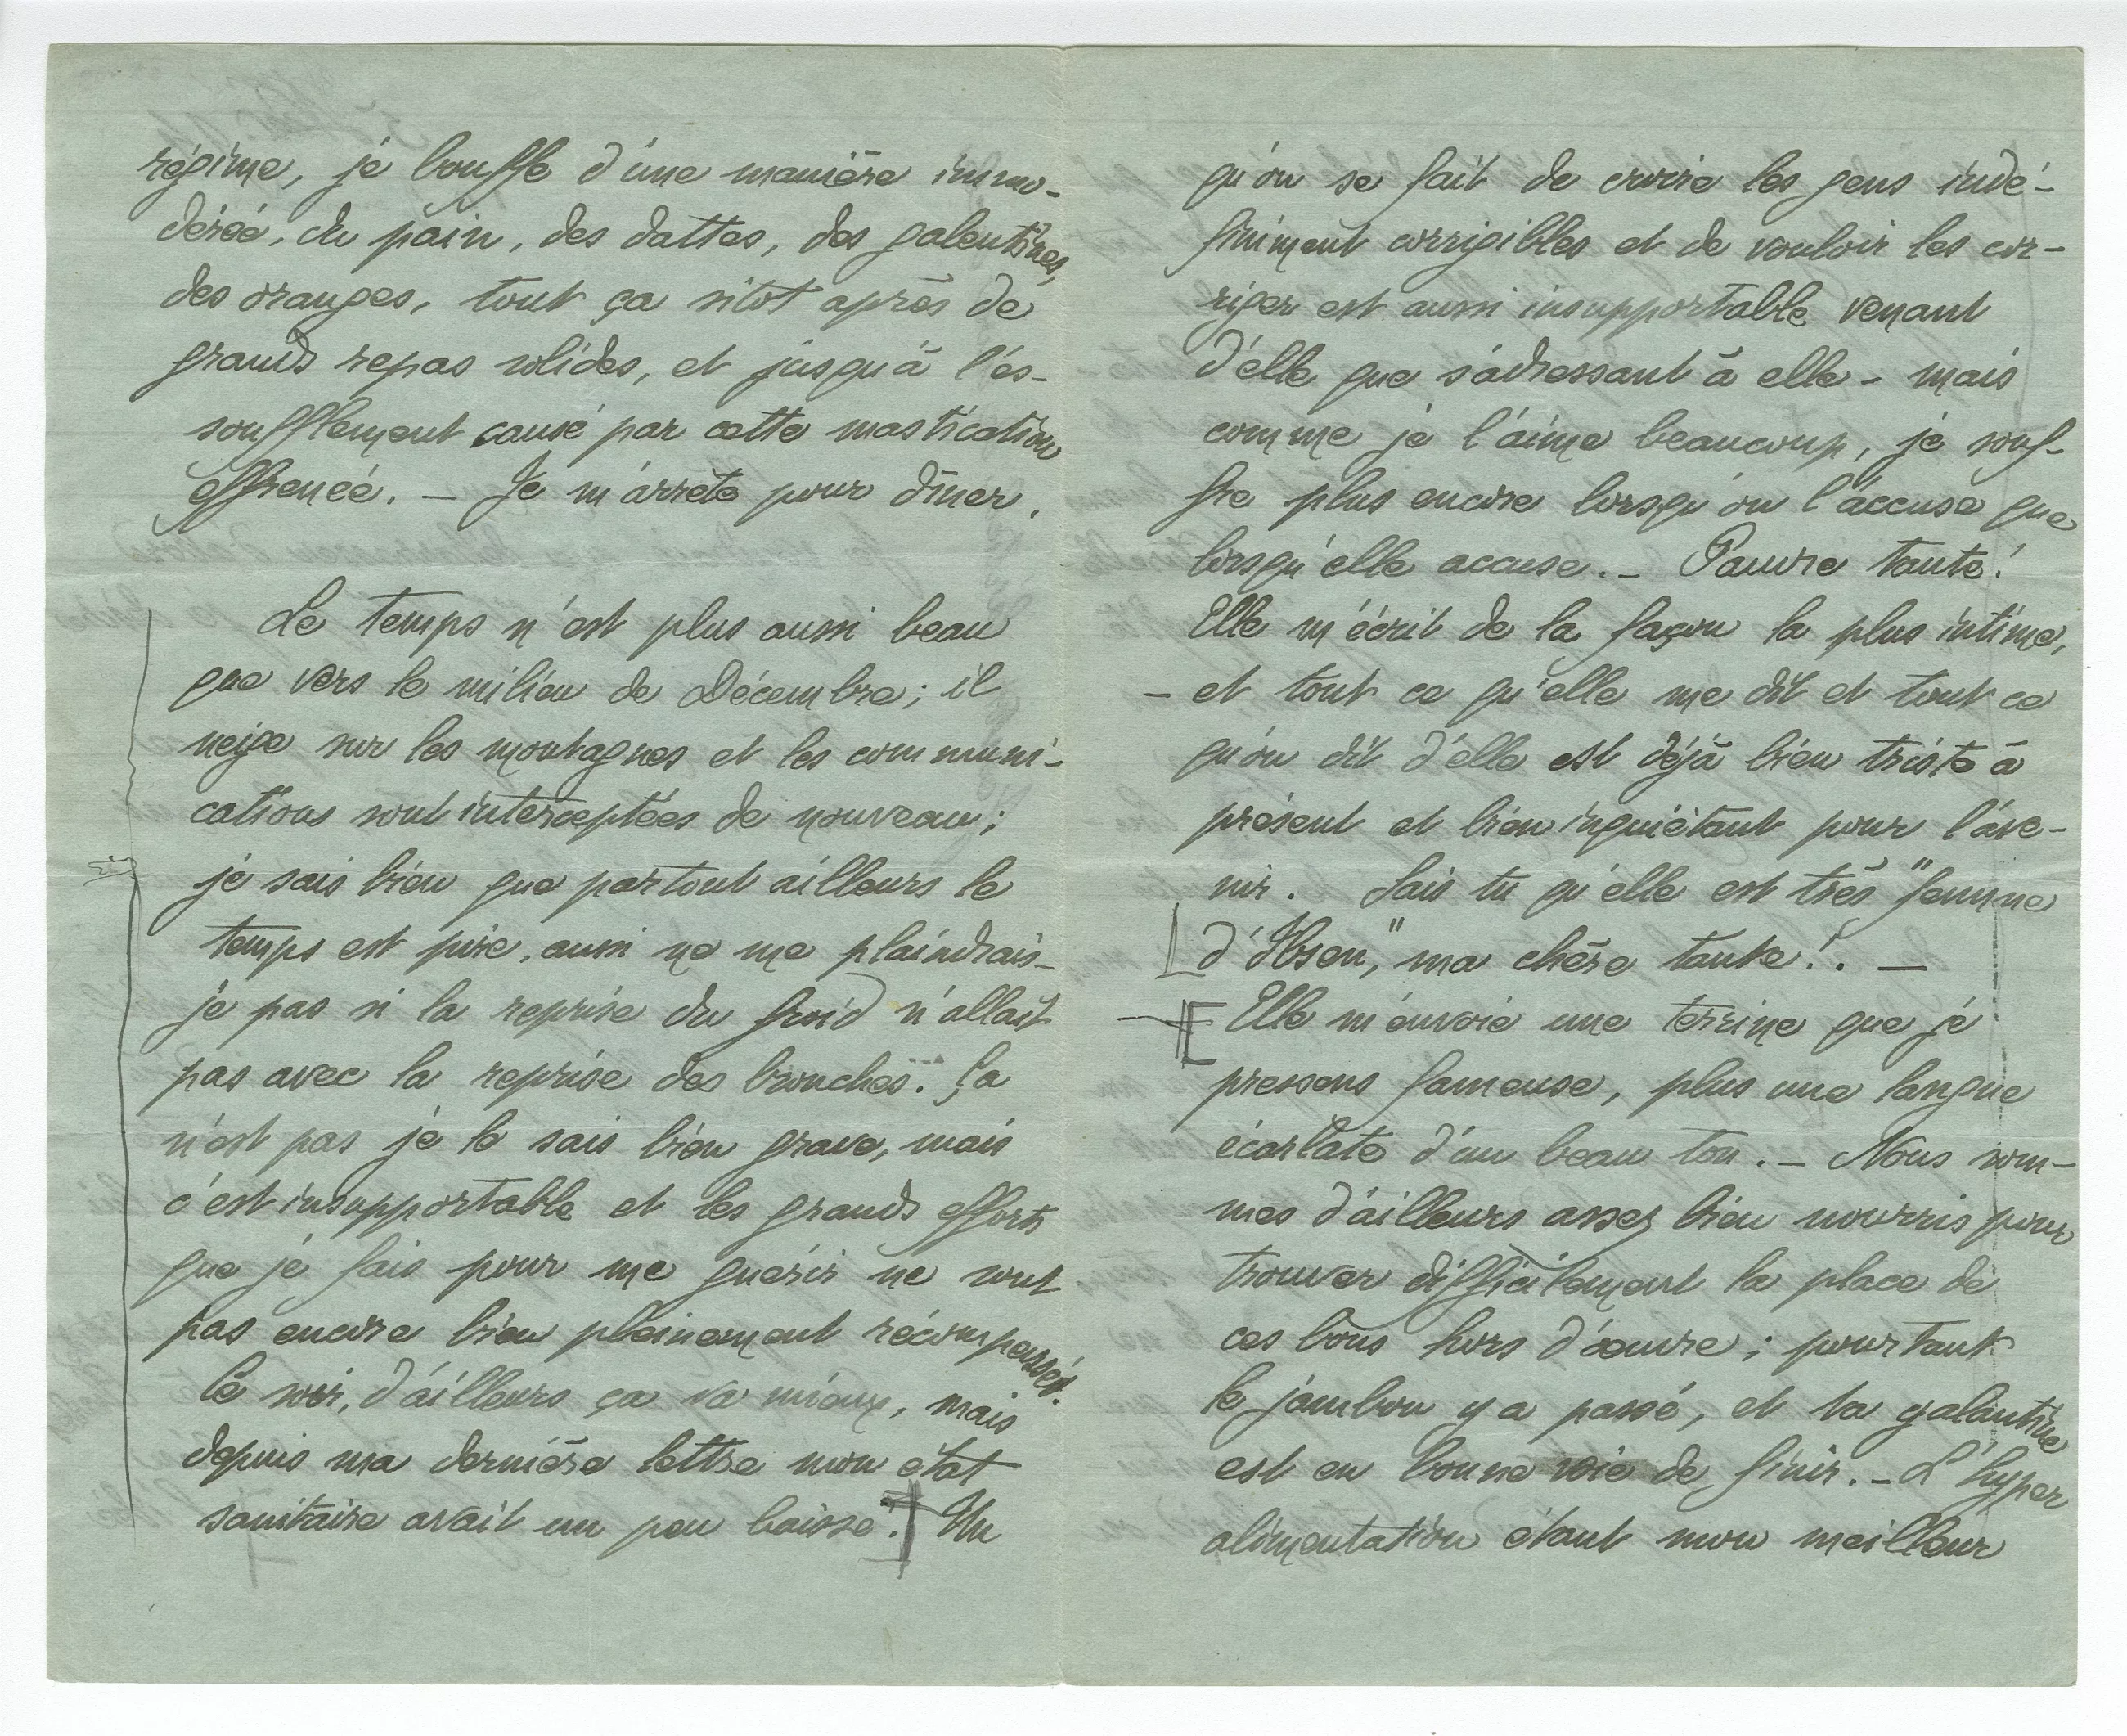 régime, je bouffe d'une manière immo-
dérée, du pain, des dattes, des galentines,
des oranges, tout ça sitot après de
grands repas solides, et jusqu'à l'es-
soufflement causé par cette mastication
effrenée. — Je m'arrête pour dîner.
Le temps n'est plus aussi beau
que vers le milieu de Décembre ; il
neige sur les montagnes et les communi-
cations sont interceptées de nouveau ;
je sais bien que partout ailleurs le
temps est pire, aussi ne me plaindrais-
je pas si la reprise du froid n'allait
pas avec la reprise des bronches. Ça
n'est pas je le sais bien grave, mais
c'est insupportable et les grands efforts
que je fais pour me guérir ne sont
pas encore bien pleinement récompensés.
Ce soir, d'ailleurs ça va mieux, mais
depuis ma dernière lettre mon état
sanitaire avait un peu baissé. Un
qu'on se fait de croire les gens indé-
finiment corrigibles et de vouloir les cor-
riger est aussi insupportable venant
d'elle que s'adressant à elle — mais
comme je l'aime beaucoup, je souf-
fre plus encore lorsqu'on l'accuse que
lorsqu'elle accuse. — Pauvre tante !
Elle m'écrit de la façon la plus intime,
— et tout ce qu'elle me dit et tout ce
qu'on dit d'elle est déjà bien triste à
présent et bien inquiétant pour l'ave-
nir. Sais tu qu'elle est très "femme
d'Ibsen", ma chère tante !. —
Elle m'envoie une terrine que je
pressens fameuse, plus une langue
écarlate d'un beau ton. — Nous som-
mes d'ailleurs assez bien nourris pour
trouver difficilement la place de
ces bons hors d'œuvre ; pourtant
le jambon y a passé, et la galantine
est en bonne voie de finir. — L'hyper
alimentation étant mon meilleur